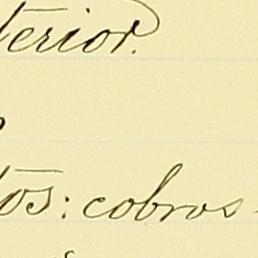 terior.
tos: cobros